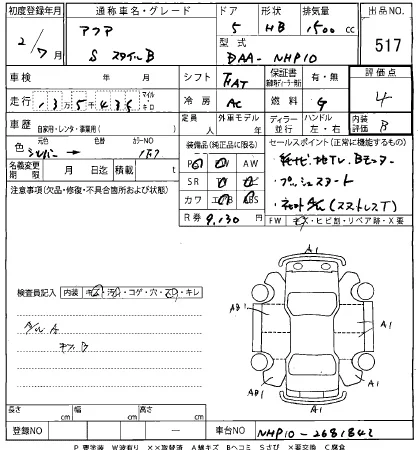 初度登録年月 通称車名・グレード ドア 形状 排気量 出品NO.
2/7月 アクア 5 HB 1500 cc
S スタイルB 型式 517
DAA- NHP10
車検 年 月 シフト FAT 保証書 有・無 評価点
走行 13万5436 マイル キロ 冷房 AC 燃料 G 4
車歴 自家用・レンタ・事業用( ) 定員 人 外車モデル 年 ディーラー 並行 ハンドル 左・右 内装評価 B
色 シルバー → 色替 カラーNO 1F7 装備品(純正品に限る) セールスポイント(正常に機能するもの)
名義変更期限 月 日迄 積載 t PS PW AW 純ナビ 地TV、Bモニター
注意事項(欠品・修復・不具合箇所および状態) SR プッシュスタート
カワ エアB ABS
R券 9,130 円 FW キズ・ヒビ割・リペア跡・X要
A1
検査員記入 内装 キズ・汚れ・コゲ・穴・スリ・キレ
AB1 AB1
キズB
A1 A1
A1
長さ cm 幅 cm 高さ cm
登録NO ― 車台NO NHP10-2681842
P 要塗装 W波有り ××取替済 A線キズ Bヘコミ Sさび ×要交換 C腐食